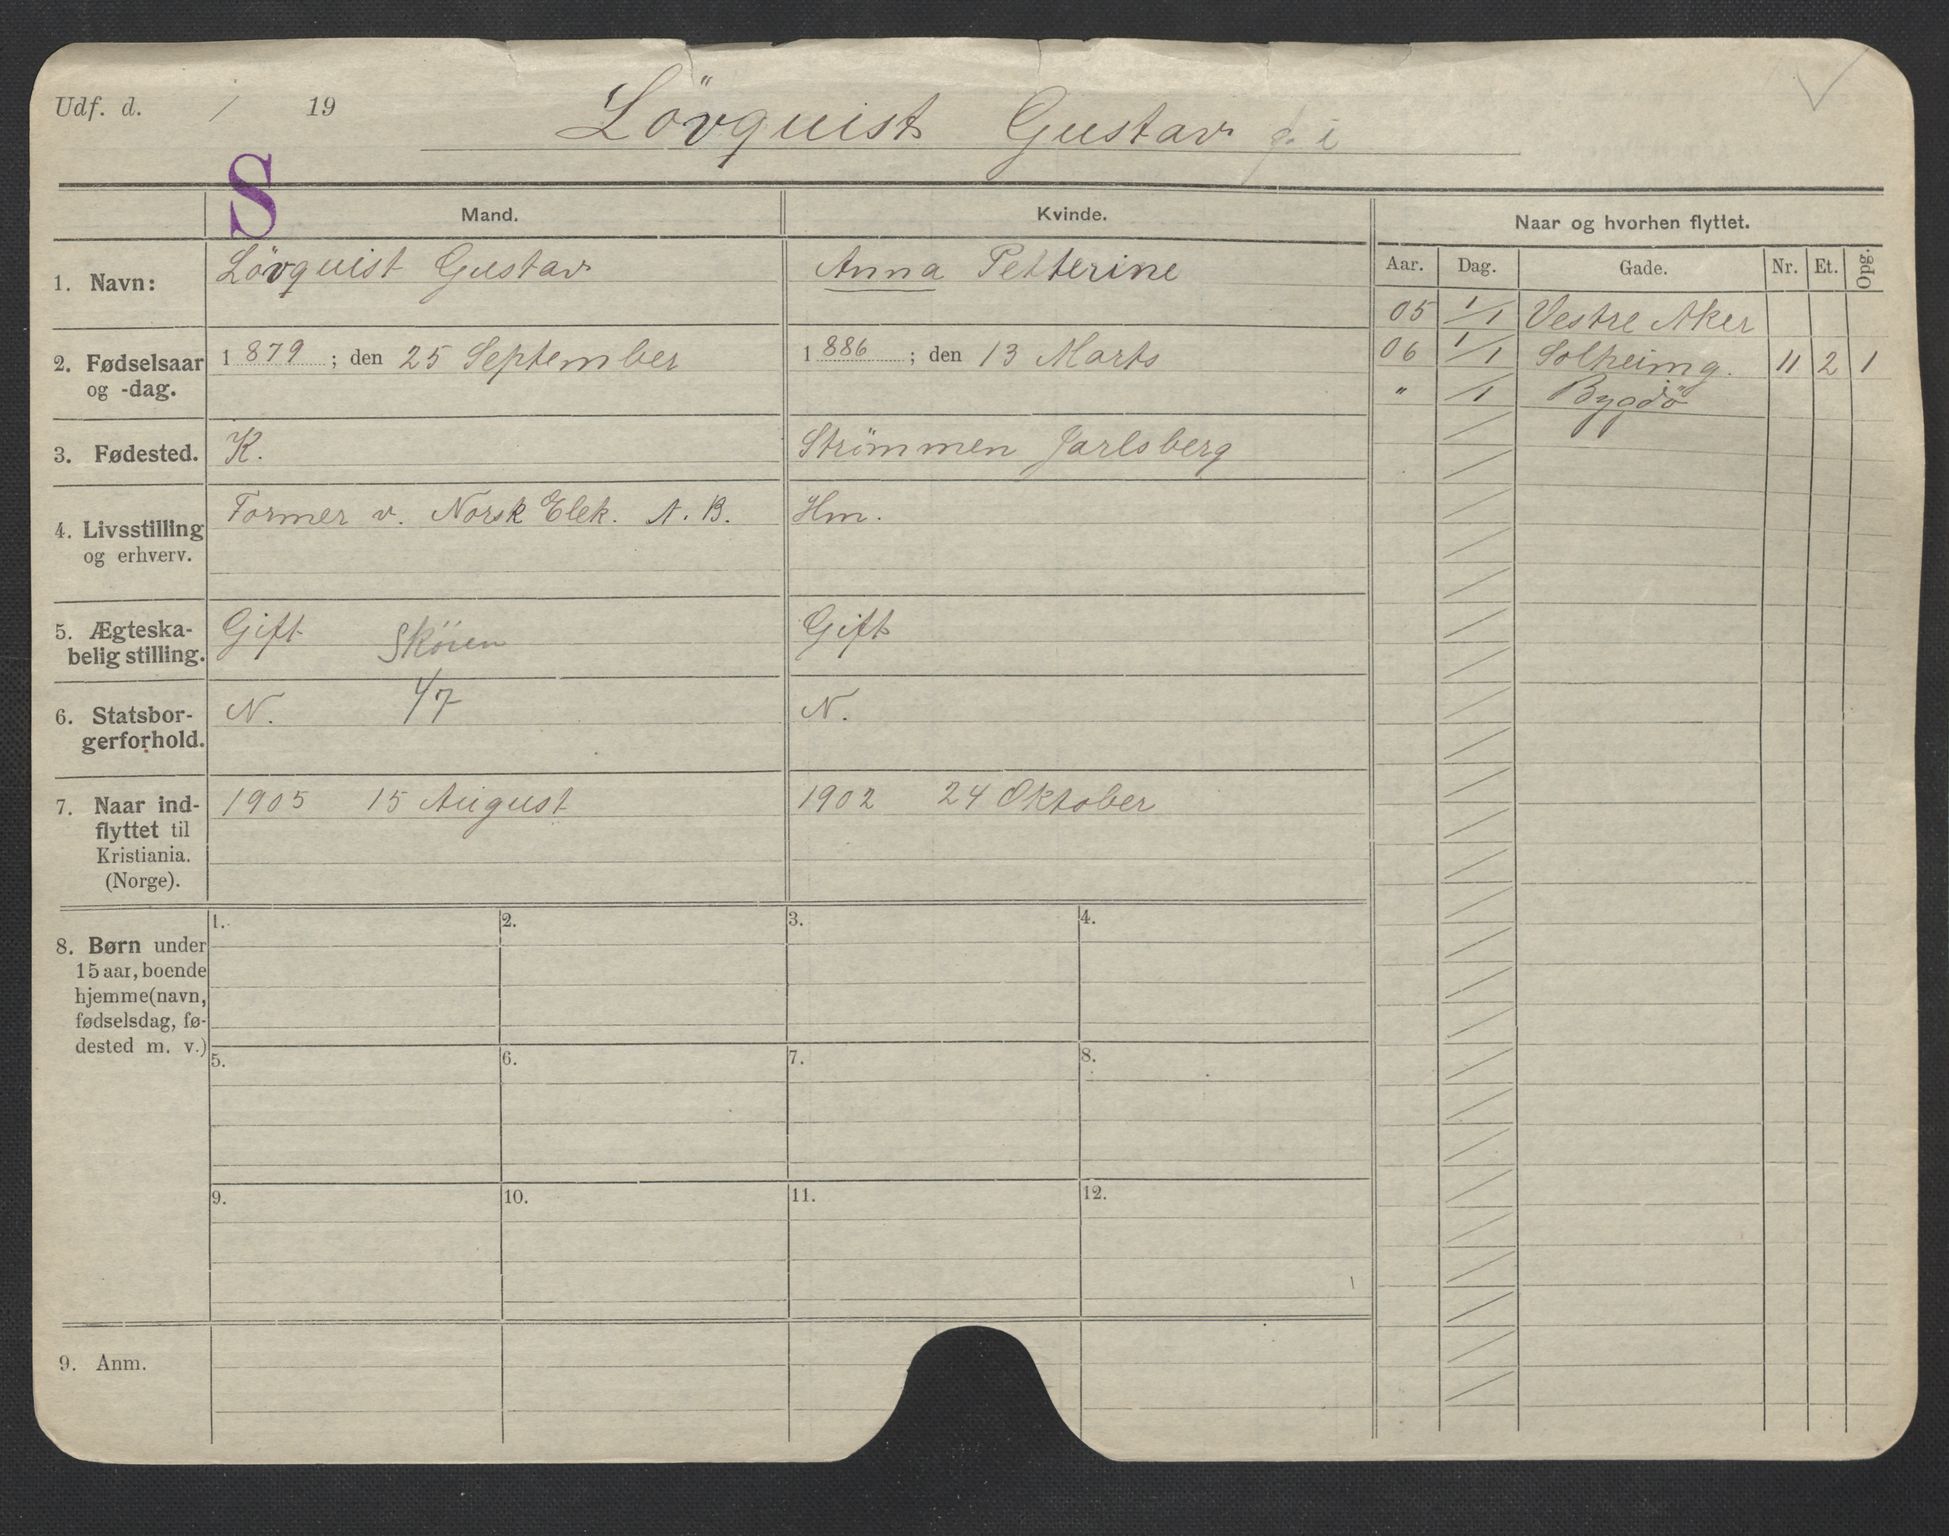 Udf. d. / 19
Lövquist Gustav
S
Mand.
Kvinde.
Naar og hvorhen flyttet.
Aar. Dag. Gade. Nr. Et. Opg.
1. Navn:
Lövquist Gustav
Anna Petterine
05 1/1 Vestre Aker
06 1/1 Solheimg. 11 2 1
" /1 Bygdö
2. Fødselsaar
og -dag.
1879; den 25 September
1886; den 13 Marts
3. Fødested.
K.
Strømmen Jarlsberg
4. Livsstilling
og erhverv.
Former v. Norsk Elek. A. B.
Hm.
5. Ægteska-
belig stilling.
Gift Sköien
Gift
6. Statsbor-
gerforhold.
N. 4/7
N.
7. Naar ind-
flyttet til
Kristiania.
(Norge).
1905 15 August
1902 24 Oktober
8. Børn under
15 aar, boende
hjemme (navn,
fødselsdag, fø-
dested m. v.)
1. 2. 3. 4.
5. 6. 7. 8.
9. 10. 11. 12.
9. Anm.